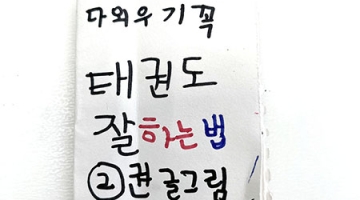 다외우기꼭
태권도
잘하는법
②권 글그림